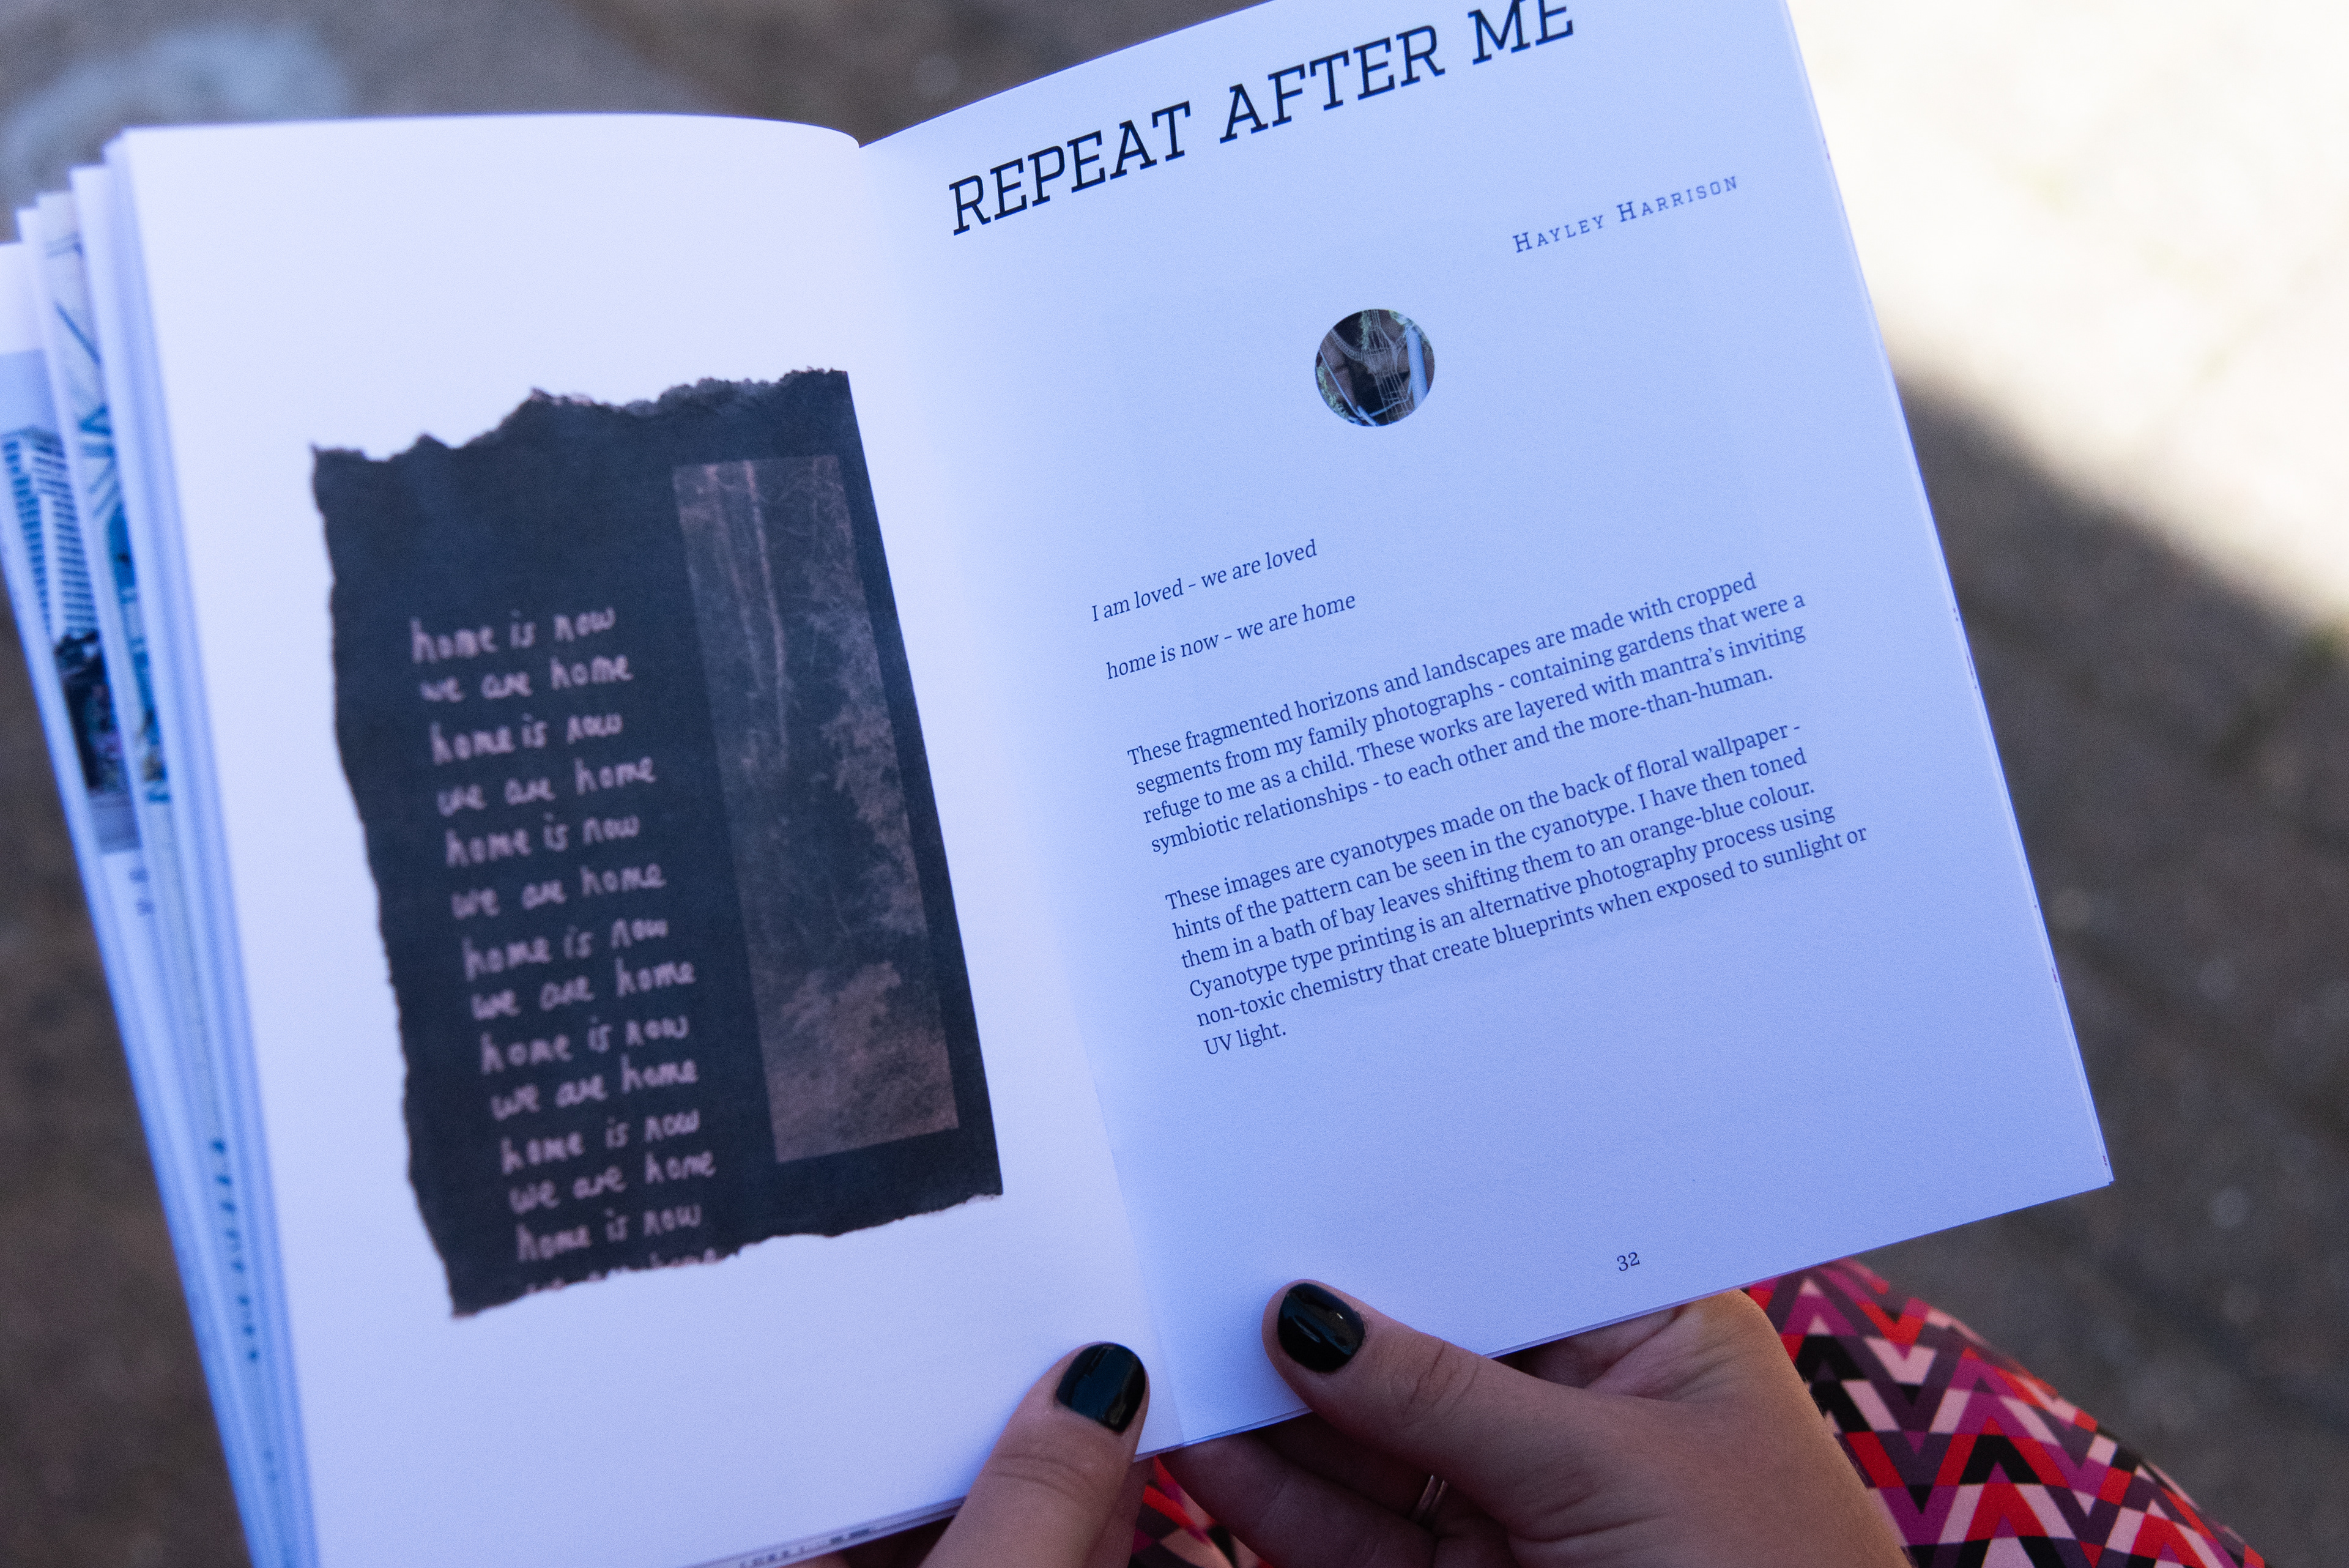 home is now
we are home
home is now
we are home
home is now
we are home
home is now
we are home
home is now
we are home
home is now
we are home
home is now
we are home
REPEAT AFTER ME
HAYLEY HARRISON
I am loved - we are loved
home is now - we are home
These fragmented horizons and landscapes are made with cropped
segments from my family photographs - containing gardens that were a
refuge to me as a child. These works are layered with mantra's inviting
symbiotic relationships - to each other and the more-than-human.
These images are cyanotypes made on the back of floral wallpaper -
hints of the pattern can be seen in the cyanotype. I have then toned
them in a bath of bay leaves shifting them to an orange-blue colour.
Cyanotype type printing is an alternative photography process using
non-toxic chemistry that create blueprints when exposed to sunlight or
UV light.
32